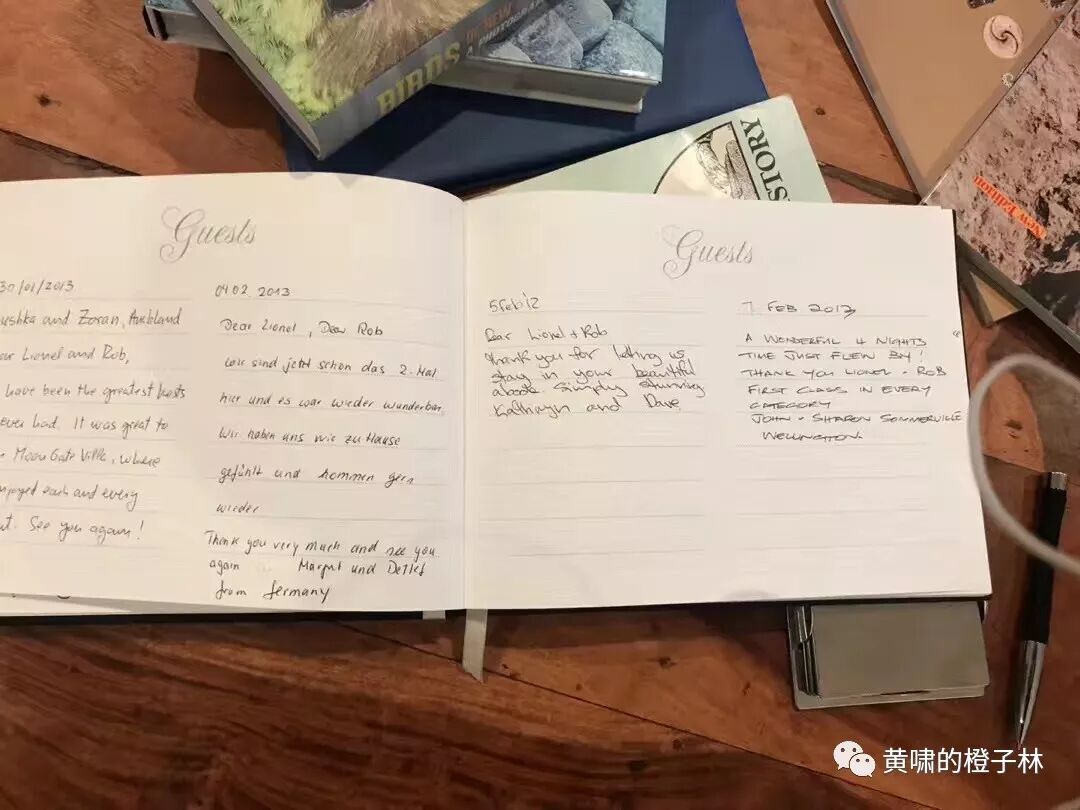 BIRDS
NEW
A PHOTOGRAPH
STORY
New Edition
Guests
30/01/2013
ushka and Zoran, Auckland
ar Lionel and Rob,
have been the greatest hosts
ever had. It was great to
Moon Gate Villa, where
njoyed each and every
See you again!
04.02.2013
Dear Lionel, Dear Rob
wir sind jetzt schon das 2. Mal
hier und es war wieder wunderbar.
Wir haben uns wie zu Hause
gefühlt und kommen gern
wieder
Thank you very much and see you
again Margut und Detlef
from Germany
Guests
5 Feb '12
Dear Lionel + Rob
Thank you for letting us
stay in your beautiful
abode. Simply stunning
Kathryn and Dave
7 FEB 2013
A WONDERFUL 4 NIGHTS
TIME JUST FLEW BY!
THANK YOU LIONEL + ROB
FIRST CLASS IN EVERY
CATEGORY
JOHN + SHARON SOMMERVILLE
WELLINGTON.
黄啸的橙子林